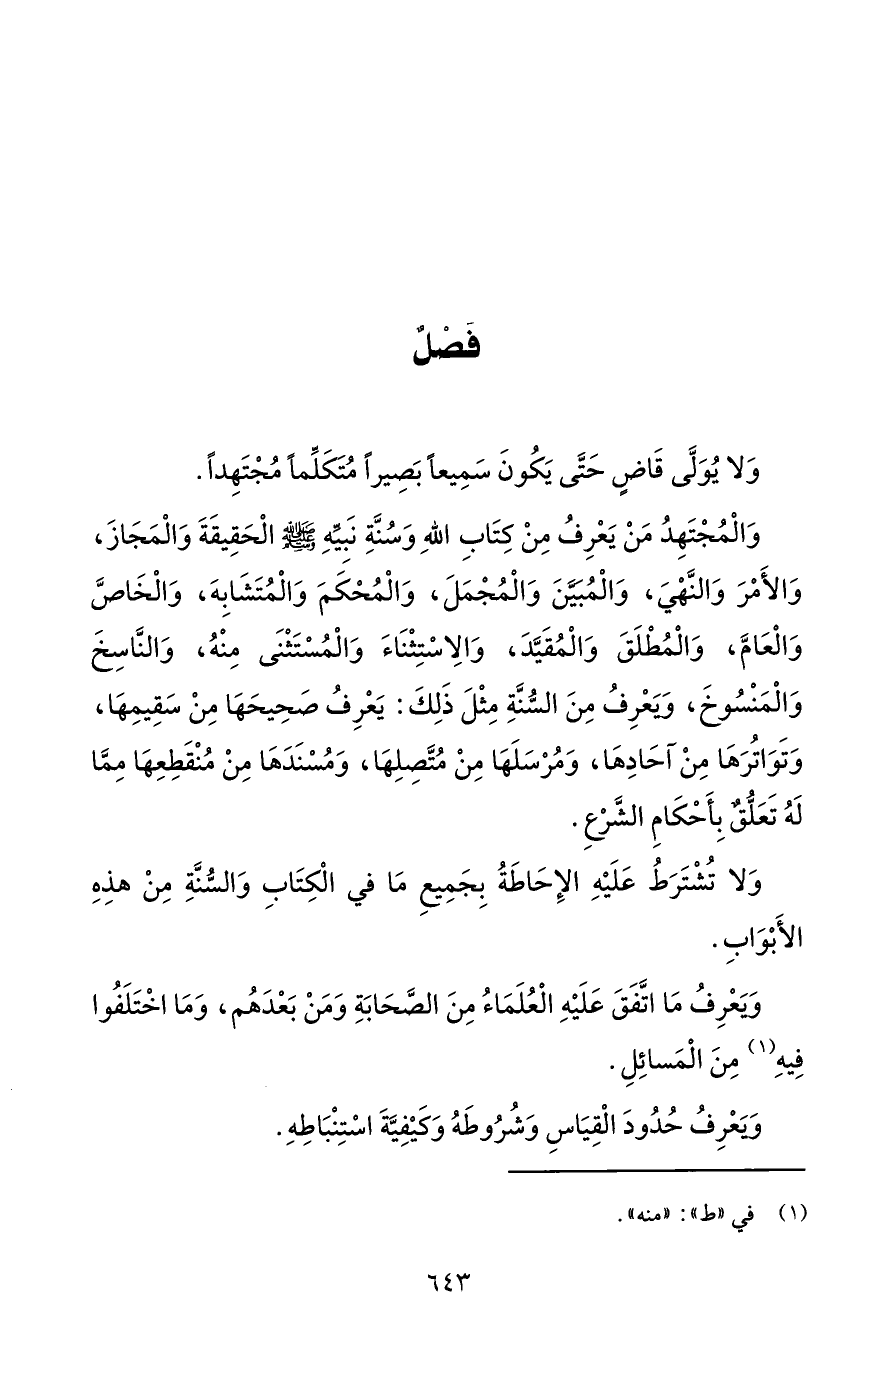 فَصْلٌ
وَلا يُوَلَّى قَاضٍ حَتَّى يَكُونَ سَمِيعاً بَصِيراً مُتَكَلِّماً مُجْتَهِداً.
وَالْمُجْتَهِدُ مَنْ يَعْرِفُ مِنْ كِتَابِ اللهِ وَسُنَّةِ نَبِيِّهِ ﷺ الْحَقِيقَةَ وَالْمَجَازَ،
وَالأَمْرَ وَالنَّهْيَ، وَالْمُبَيَّنَ وَالْمُجْمَلَ، وَالْمُحْكَمَ وَالْمُتَشَابِهَ، وَالْخَاصَّ
وَالْعَامَّ، وَالْمُطْلَقَ وَالْمُقَيَّدَ، وَالاِسْتِثْنَاءَ وَالْمُسْتَثْنَى مِنْهُ، وَالنَّاسِخَ
وَالْمَنْسُوخَ، وَيَعْرِفُ مِنَ السُّنَّةِ مِثْلَ ذَلِكَ: يَعْرِفُ صَحِيحَهَا مِنْ سَقِيمِهَا،
وَتَوَاتُرَهَا مِنْ آحَادِهَا، وَمُرْسَلَهَا مِنْ مُتَّصِلِهَا، وَمُسْنَدَهَا مِنْ مُنْقَطِعِهَا مِمَّا
لَهُ تَعَلُّقٌ بِأَحْكَامِ الشَّرْعِ.
وَلا تُشْتَرَطُ عَلَيْهِ الإِحَاطَةُ بِجَمِيعِ مَا في الْكِتَابِ وَالسُّنَّةِ مِنْ هذِهِ
الأَبْوَابِ.
وَيَعْرِفُ مَا اتَّفَقَ عَلَيْهِ الْعُلَمَاءُ مِنَ الصَّحَابَةِ وَمَنْ بَعْدَهُم، وَمَا اخْتَلَفُوا
فِيهِ(١) مِنَ الْمَسائِلِ.
وَيَعْرِفُ حُدُودَ الْقِيَاسِ وَشُرُوطَهُ وَكَيْفِيَّةَ اسْتِنْبَاطِهِ.
(١) في «ط»: «منه».
٦٤٣